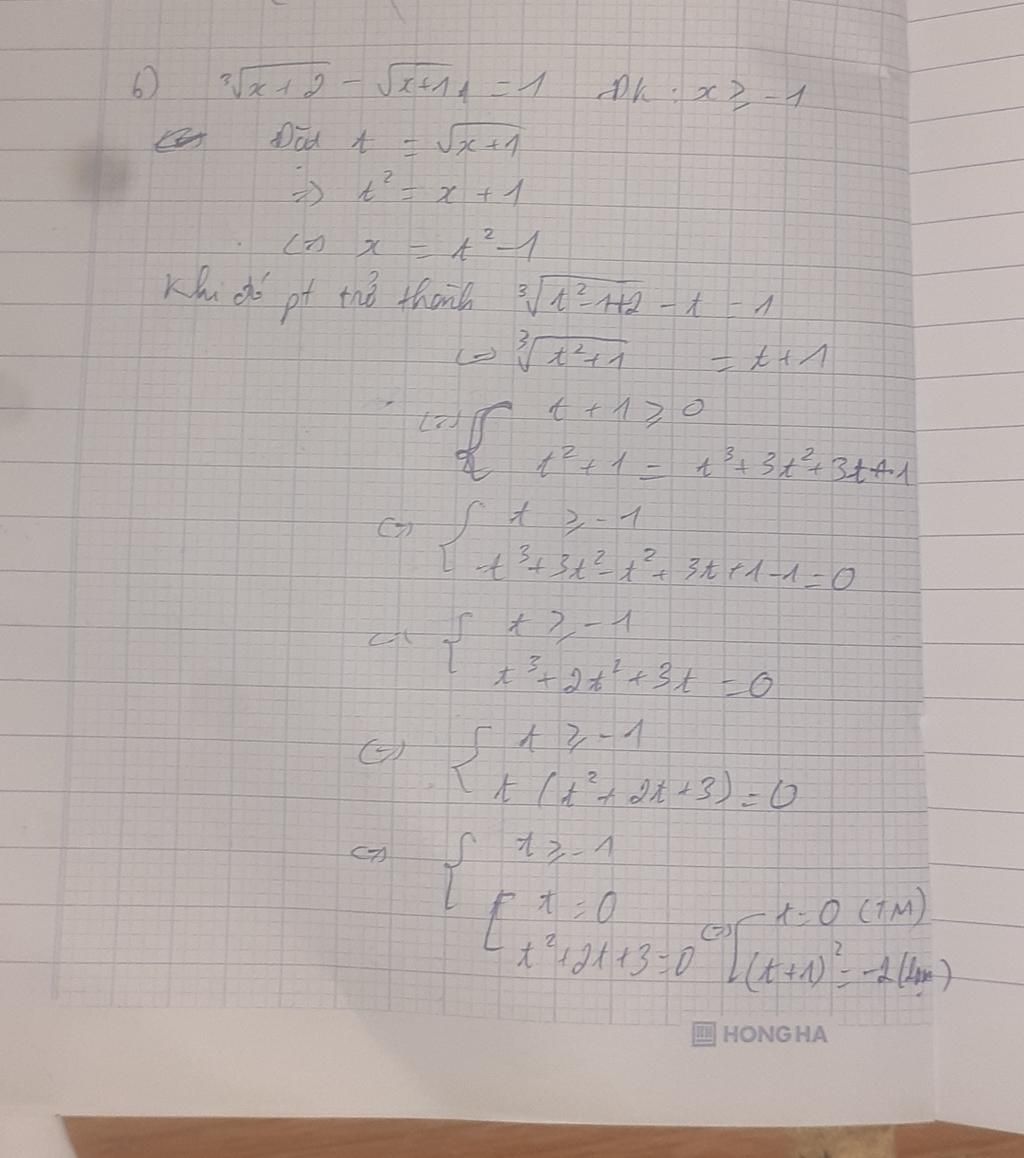 b) ∛(x+2) - √(x+1) = 1 Đk : x ≥ -1
Đặt t = √(x+1)
=> t² = x + 1
<=> x = t² - 1
Khi đó pt trở thành ∛(t²-1+2) - t = 1
<=> ∛(t²+1) = t + 1
<=> { t + 1 ≥ 0
t² + 1 = t³ + 3t² + 3t + 1
<=> { t ≥ -1
t³ + 3t² - t² + 3t + 1 - 1 = 0
<=> { t ≥ -1
t³ + 2t² + 3t = 0
<=> { t ≥ -1
t (t² + 2t + 3) = 0
<=> { t ≥ -1
[ t = 0 <=> [ t = 0 (TM)
t² + 2t + 3 = 0 (t+1)² = -2
HONG HA